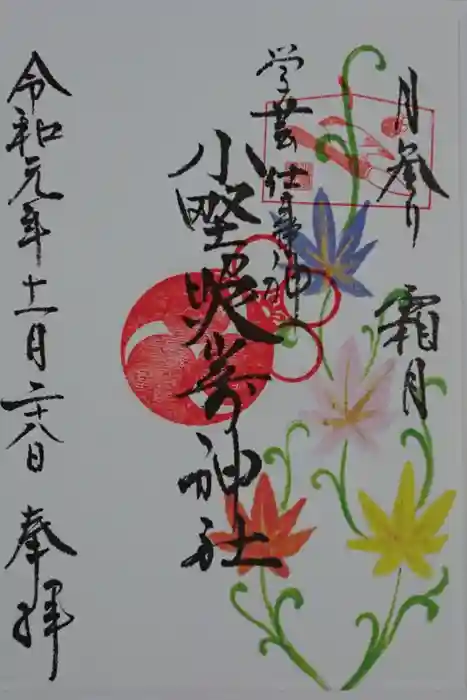 月参り
霜月
学芸仕事神
小野照崎神社
令和元年十一月二十八日
奉拝